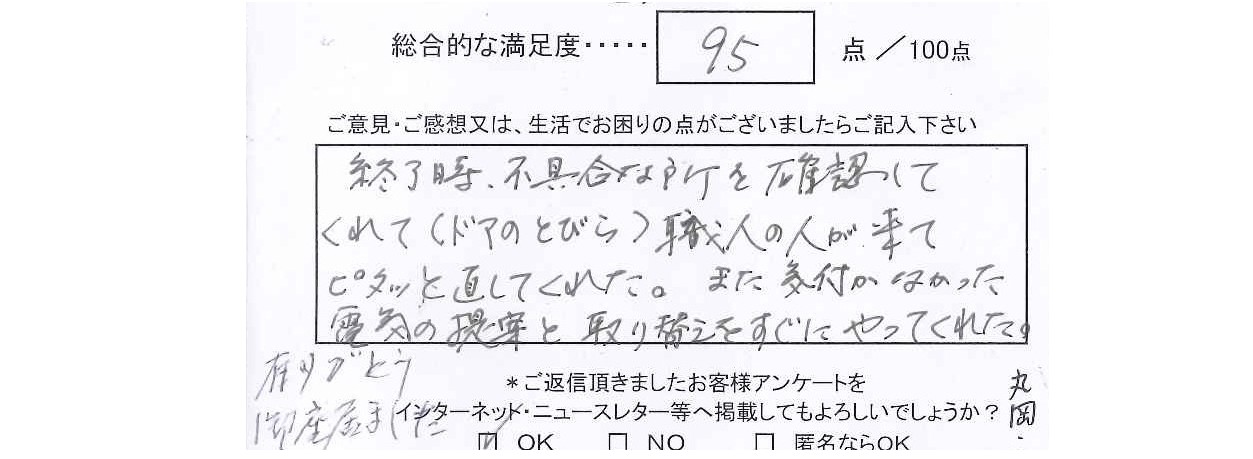 総合的な満足度・・・・・ 95 点 ／100点
ご意見・ご感想又は、生活でお困りの点がございましたらご記入下さい
終了時、不具合な所を確認して
くれて（ドアのとびら）職人の人が来て
ピタッと直してくれた。また気付かなかった
電気の提案と取り替えをすぐにやってくれた。
有りがとう
御座居ました
＊ご返信頂きましたお客様アンケートを
インターネット・ニュースレター等へ掲載してもよろしいでしょうか？
丸岡
OK □ NO □ 匿名ならOK